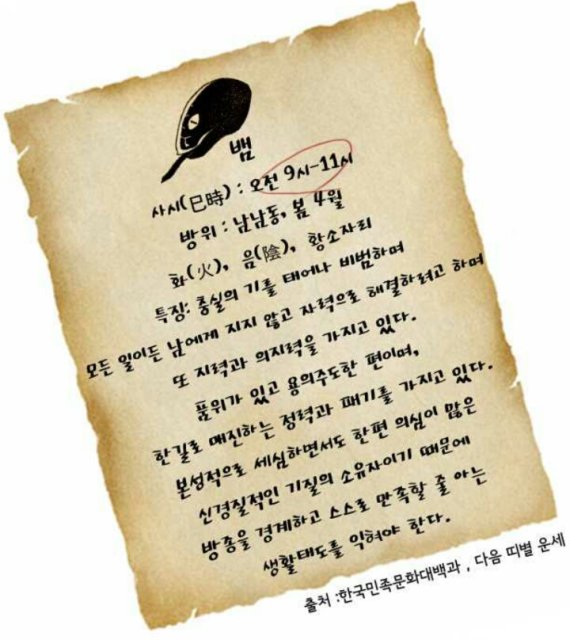 뱀
사시(巳時) : 오전 9시-11시
방위 : 남남동, 봄 4월
화(火), 음(陰), 황소자리
특징: 충실의 기를 태어나 비범하며
모든 일이든 남에게 지지 않고 자력으로 해결하려고 하며
또 지력과 의지력을 가지고 있다.
품위가 있고 용의주도한 편이며,
한길로 매진하는 정력과 패기를 가지고 있다.
본성적으로 세심하면서도 한편 의심이 많은
신경질적인 기질의 소유자이기 때문에
방종을 경계하고 스스로 만족할 줄 아는
생활태도를 익혀야 한다.
출처 :한국민족문화대백과 , 다음 띠별 운세